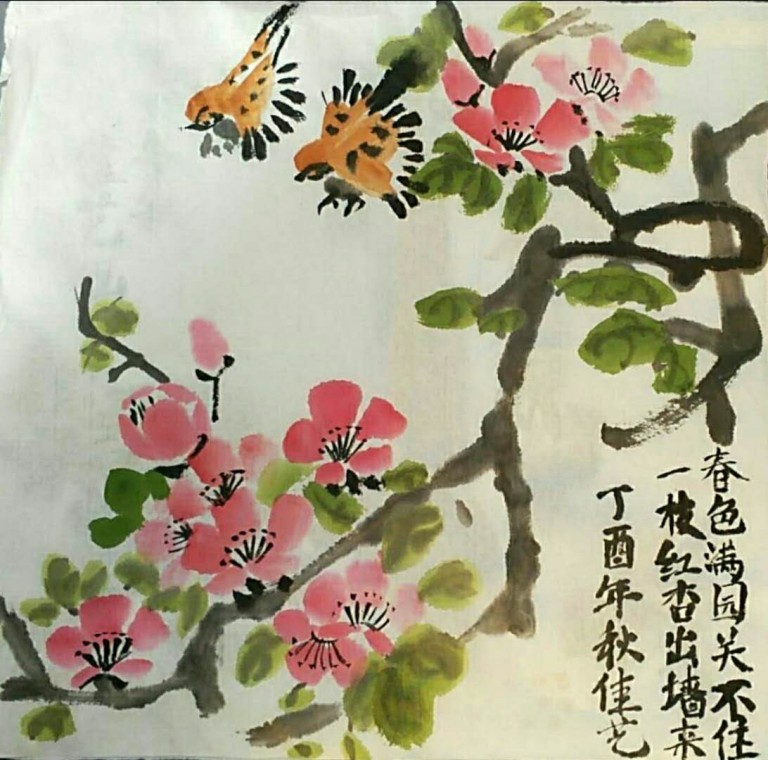 春色满园关不住
一枝红杏出墙来
丁酉年秋佳艺